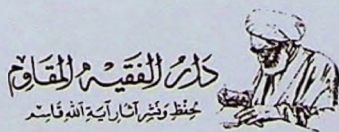 دَارُ الفَقِيهِ المُقَاوِمِ
لِحِفْظِ وَنَشْرِ آثَارِ آيَةِ اللهِ قَاسِم